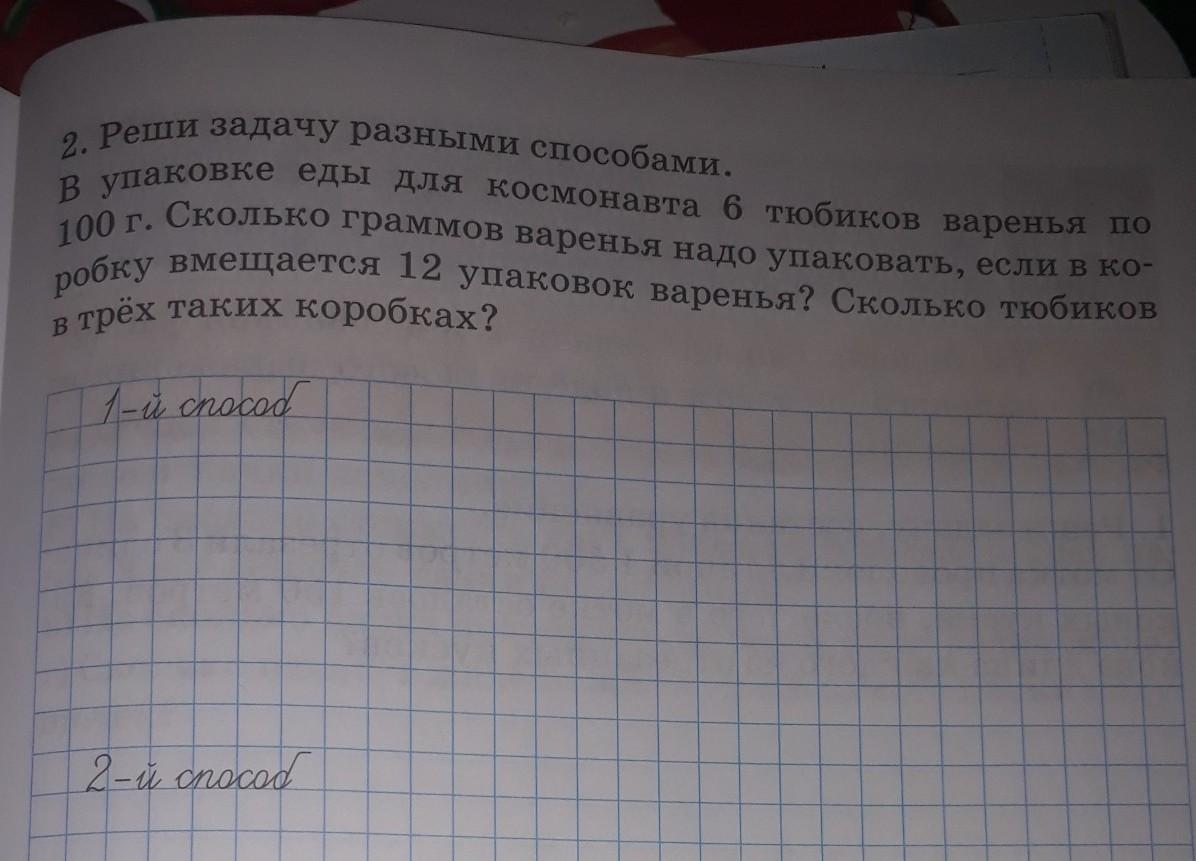 2. Реши задачу разными способами.
В упаковке еды для космонавта 6 тюбиков варенья по
100 г. Сколько граммов варенья надо упаковать, если в ко-
робку вмещается 12 упаковок варенья? Сколько тюбиков
в трёх таких коробках?
1-й способ
2-й способ